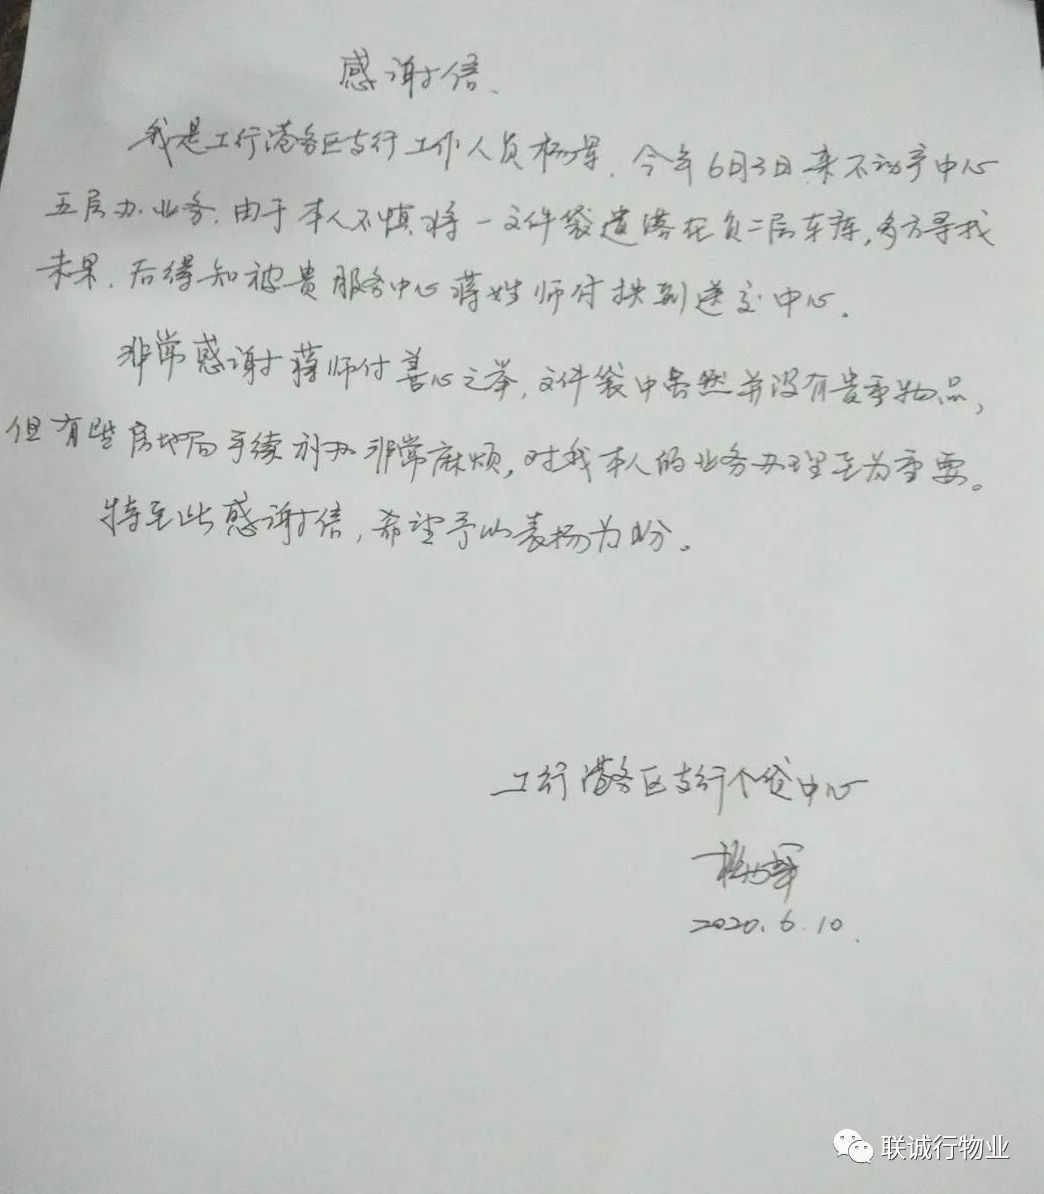 感谢信、
我是工行港务区支行工作人员杨军.今年6月3日来不动产中心
五层办业务.由于本人不慎将一文件袋遗落在负二层车库,多方寻找
未果.后得知被贵服务中心蒋姓师付拱到送交中心.
非常感谢蒋师付善心之举,文件袋中虽然并没有贵重物品,
但有些房地局手续补办非常麻烦,对我本人的业务办理至为重要。
特至此感谢信,希望予以表扬为盼。
工行港务区支行个贷中心
杨军
2020.6.10.
联诚行物业